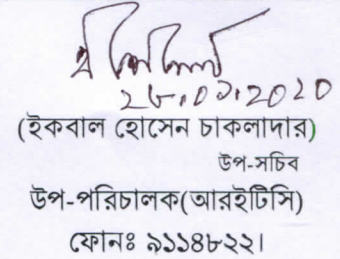 ২৮.০১.২০২০
(ইকবাল হোসেন চাকলাদার)
উপ-সচিব
উপ-পরিচালক(আরইটিসি)
ফোনঃ ৯১১৪৮২২।